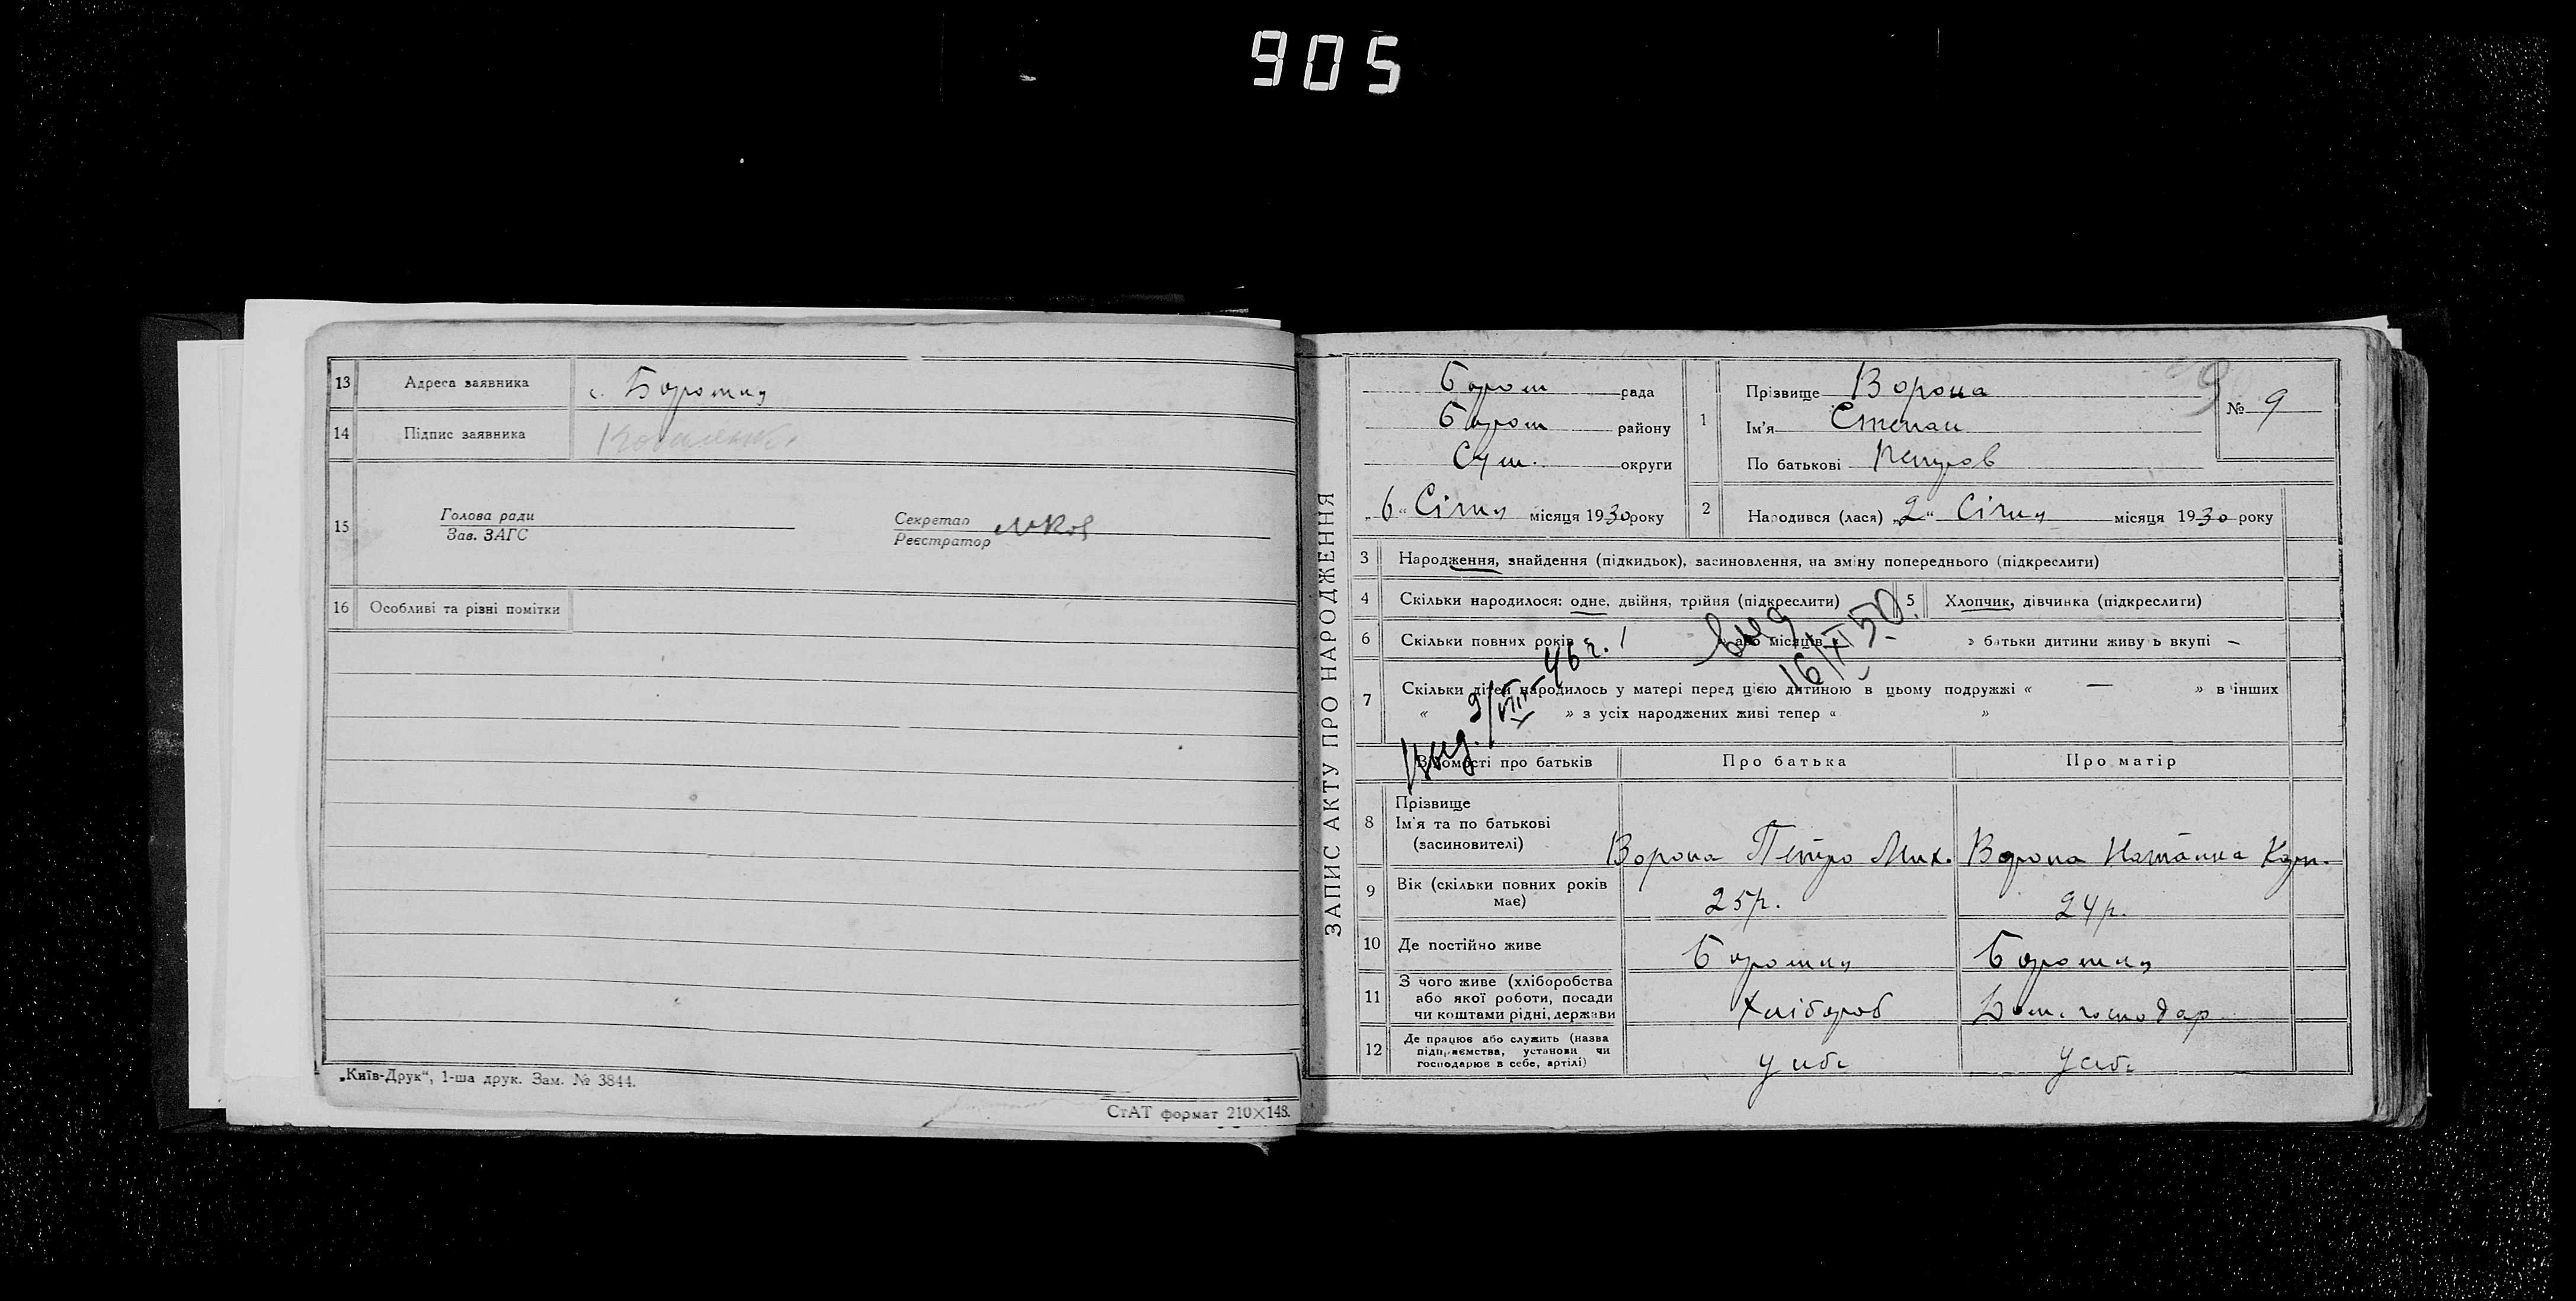 905
13 Адреса заявника с. Боромля
14 Підпис заявника
15 Голова ради
Зав. ЗАГС
Секретар
Реєстратор
16 Особливі та різні помітки
„Київ-Друк“, 1-ша друк. Зам. № 3844.
СтАТ формат 210×148.
ЗАПИС АКТУ ПРО НАРОДЖЕННЯ
Бором рада
Бором району
Сум. округи
„6“ Січня місяця 1930 року
1 Прізвище Ворона
Ім'я Степан
По батькові Петров
№ 9
2 Народився (лася) „2“ Січня місяця 1930 року
3 Народження, знайдення (підкидьок), засиновлення, на зміну попереднього (підкреслити)
4 Скільки народилося: одне, двійня, трійня (підкреслити) 5 Хлопчик, дівчинка (підкреслити)
6 Скільки повних років 1 або місяців » батьки дитини живуть вкупі –
7 Скільки дітей народилось у матері перед цією дитиною в цьому подружжі « — » в інших
« » з усіх народжених живі тепер « »
выд 16/XI 50.
Выд. 9/VIII–46 г.
Відомості про батьків Про батька Про матір
8 Прізвище
Ім'я та по батькові
(засиновителі)
Ворона Петро Мих. Ворона
9 Вік (скільки повних років
має) 25 р. 24 р.
10 Де постійно живе Боромля Боромля
11 З чого живе (хліборобства
або якої роботи, посади
чи коштами рідні, держави
Хлібороб Дом. господар.
12 Де працює або служить (назва
підприємства, установи чи
господарює в себе, артілі)
у себе у себе